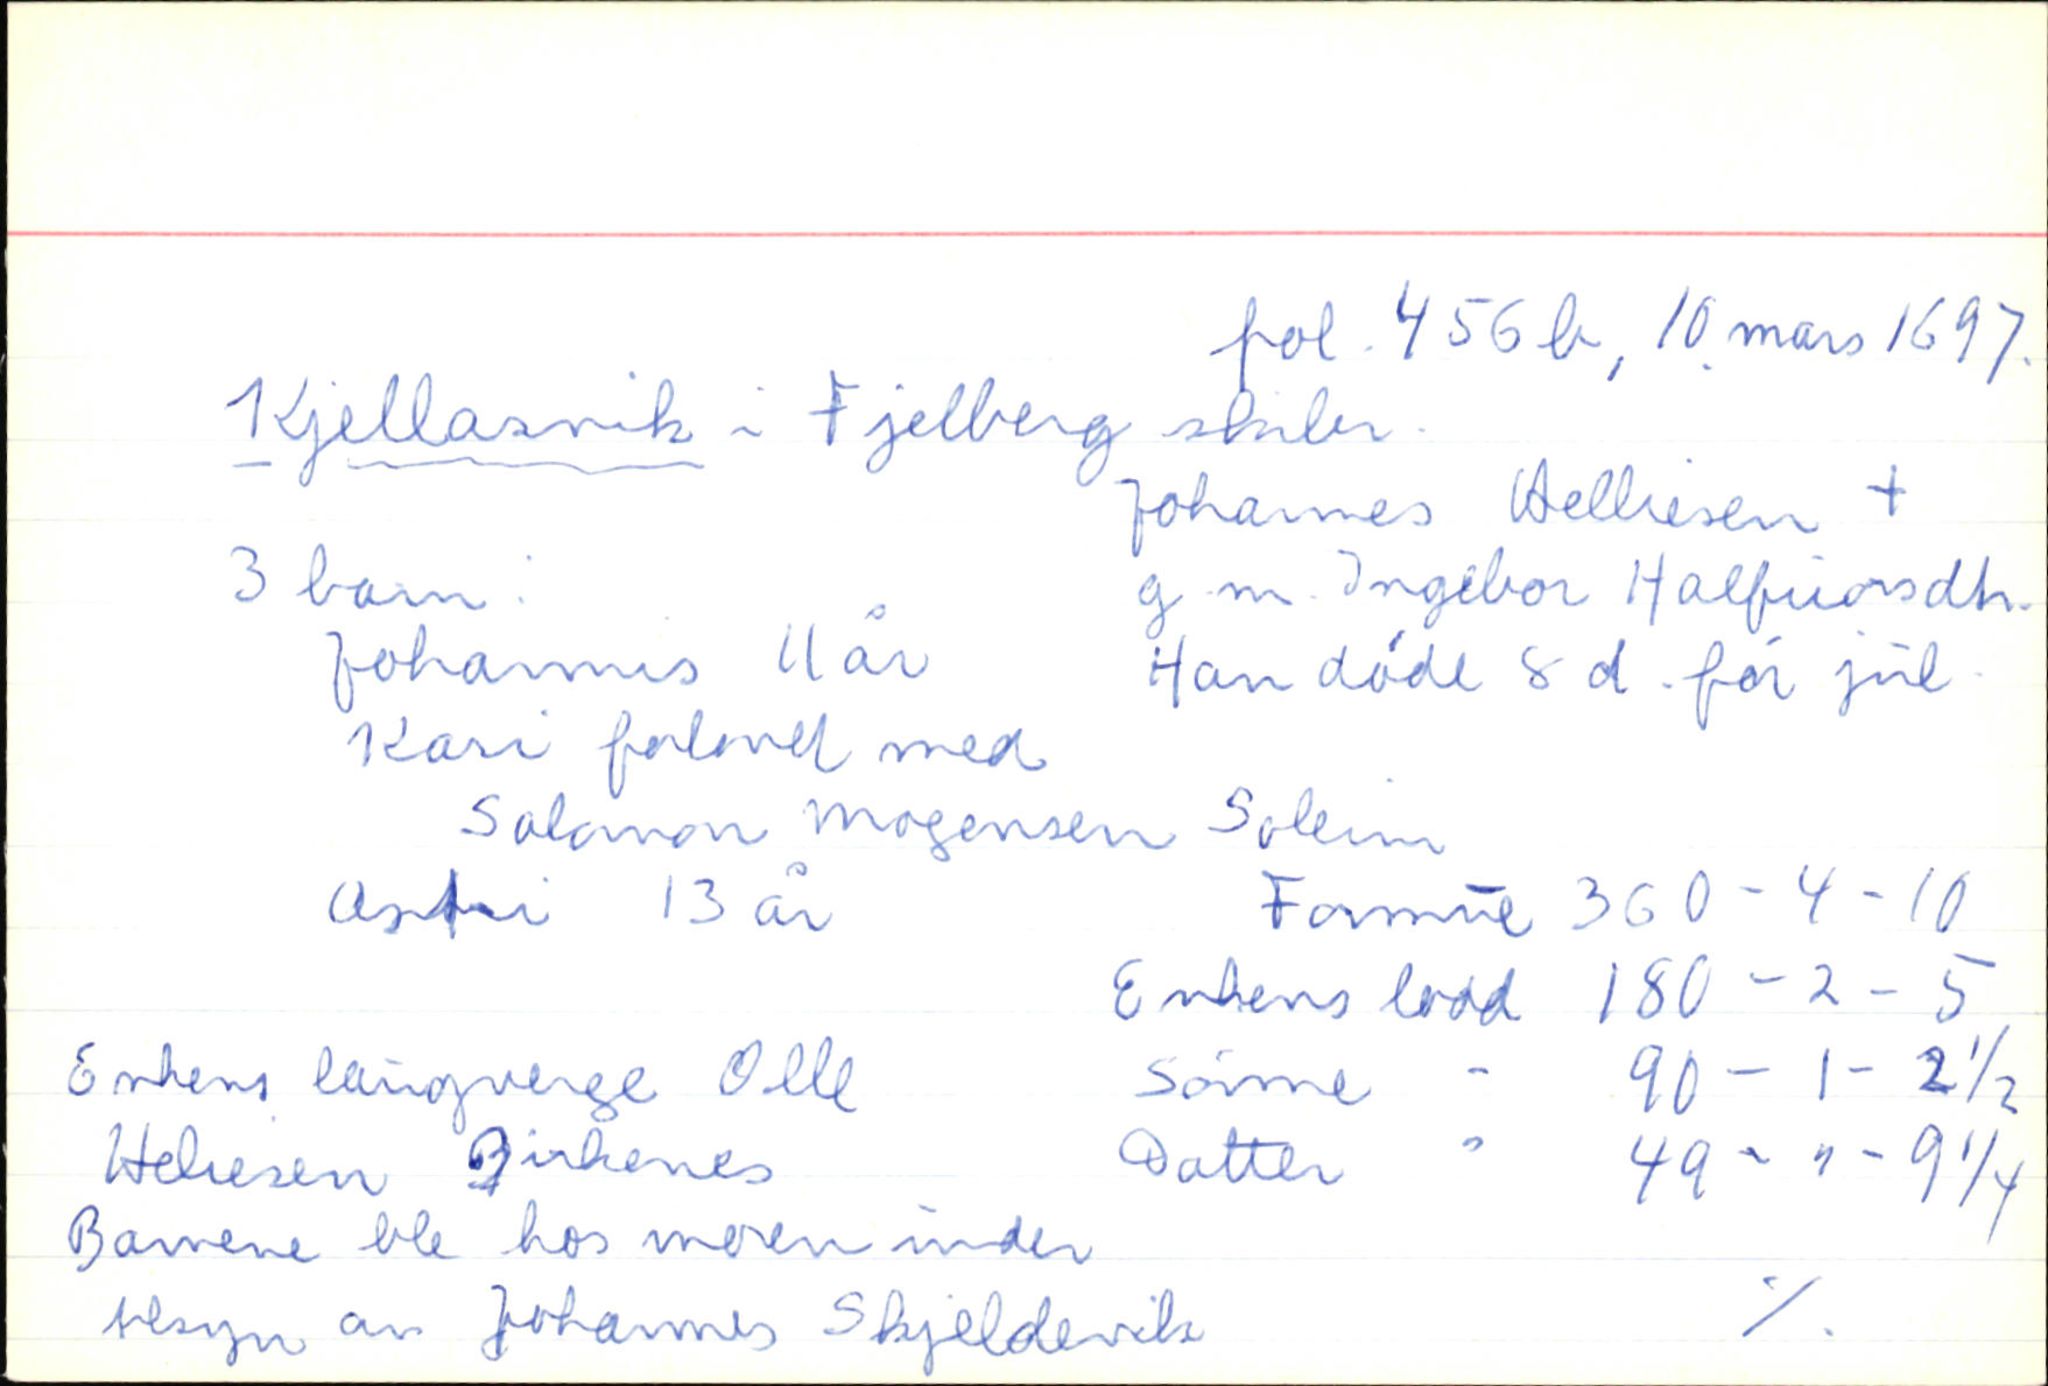 fol. 456 b, 10. mars 1697.
Kjellasvik i Fjelberg skiber.
Johannes Helliesen +
3 barn: g. m. Ingebor Halfuorsdtr.
Johannis 11 år Han døde 8 d. før jul.
Kari forlovet med
Salomon Mogensen Soleim
Astri 13 år Formue 360 - 4 - 10
Enkens lodd 180 - 2 - 5
Enkens laugverge Olle Sønne " 90 - 1 - 2 1/2
Heliesen Birkenes Datter " 49 - " - 9 1/4
Barnene ble hos moren under
tilsyn av Johannes Skjeldevik ·/.